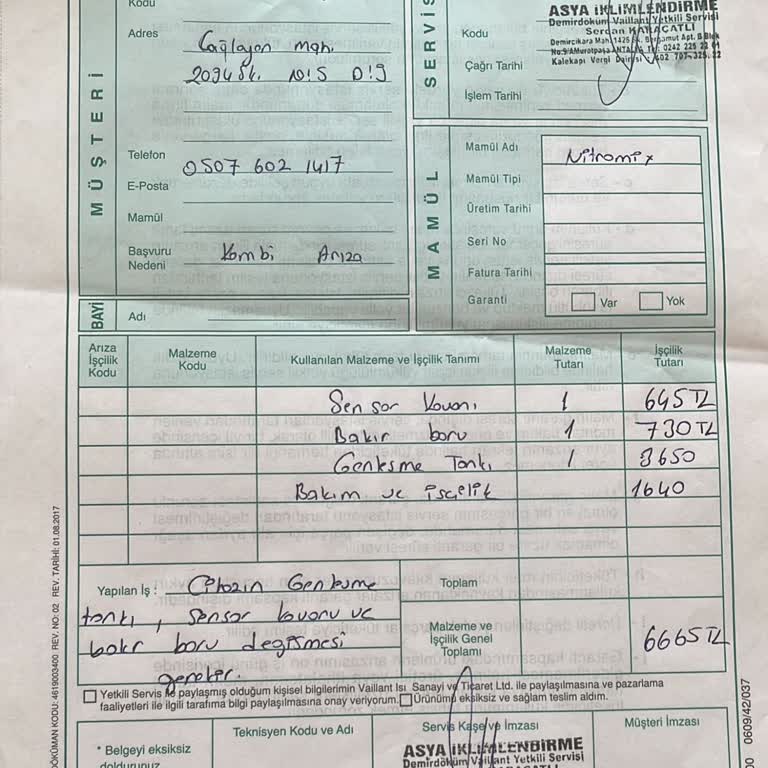 Kodu
Adres
Çağlayan mah.
2034 Sk. N:5 D:9
Telefon
0507 602 1417
E-Posta
Mamül
Başvuru Nedeni
Kombi Arıza
MÜŞTERİ
SERVİS
ASYA İKLİMLENDİRME
Demirdöküm Vaillant Yetkili Servisi
Serdar KARAÇATLI
Kodu
Çağrı Tarihi
İşlem Tarihi
MAMÜL
Mamül Adı
Nitromix
Mamül Tipi
Üretim Tarihi
Seri No
Fatura Tarihi
Garanti
Var
Yok
BAYİ
Adı
Arıza İşçilik Kodu
Malzeme Kodu
Kullanılan Malzeme ve İşçilik Tanımı
Malzeme Tutarı
İşçilik Tutarı
Sensor kovanı 1 645 TL
Bakır boru 1 730 TL
Genleşme Tankı 1 3650
Bakım ve işçilik 1640
Yapılan İş : Cihazın Genleşme
tankı, sensor kovanı ve
bakır boru değişmesi
gerekir.
Toplam
Malzeme ve İşçilik Genel Toplamı
6665 TL
Yetkili Servis ile paylaşmış olduğum kişisel bilgilerimin Vaillant Isı Sanayi ve Ticaret Ltd. ile paylaşılmasına ve pazarlama
faaliyetleri ile ilgili tarafıma bilgi paylaşılmasına onay veriyorum. Ürünümü eksiksiz ve sağlam teslim aldım.
* Belgeyi eksiksiz
doldurunuz
Teknisyen Kodu ve Adı
Servis Kaşe ve İmzası
Müşteri İmzası
ASYA İKLİMLENDİRME
Demirdöküm Vaillant Yetkili Servisi
DÖKÜMAN KODU: 4619003400 REV. NO: 02 REV. TARİHİ: 01.08.2017
0609/42/037